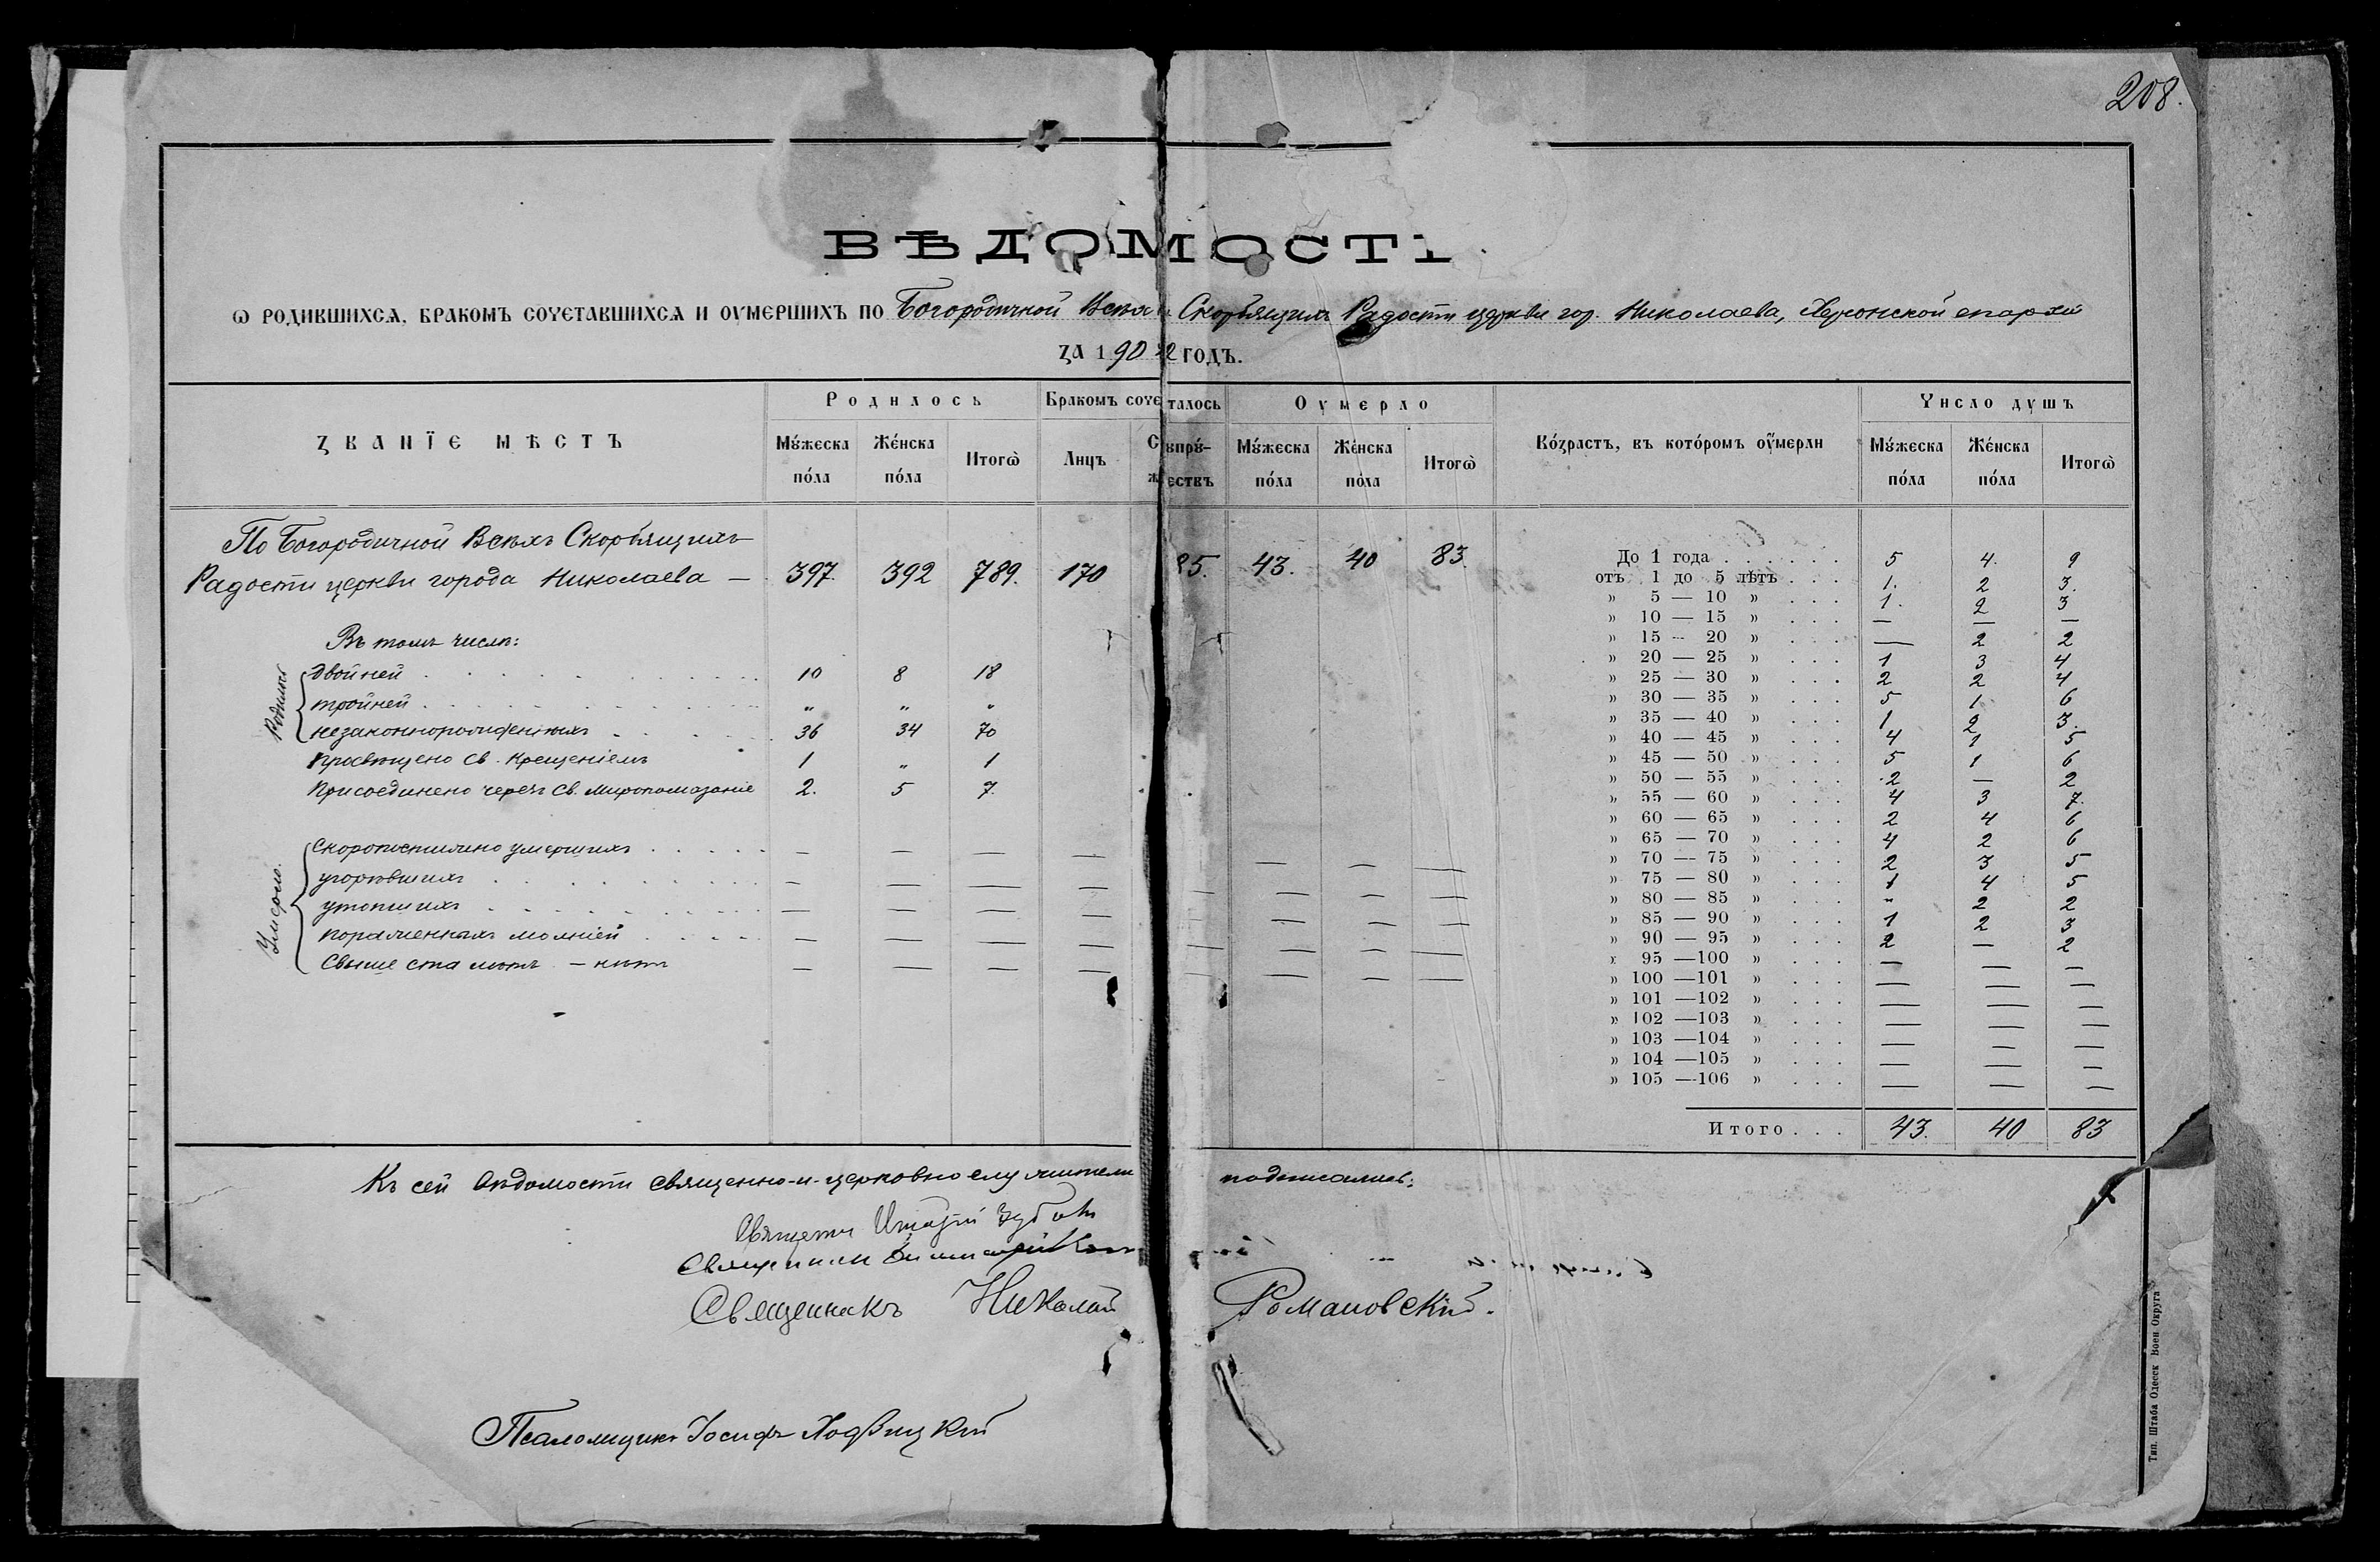 208.
ВѢДОМОСТ
Ѡ РОДИВШИХСѦ, БРАКОМЪ СОЧЕТАВШИХСѦ И ОУМЕРШИХЪ ПО Богородичной Всѣхъ Скорбящихъ Радости церкви гор. Николаева, Херсонской епархіи
ЗА 1902 ГОДЪ.
ЗВАНЇЕ МѢСТЪ
Родилось
Бракомъ сочеталось
Оумерло
Возрастъ, въ которомъ оумерли
Число душъ
Мꙋжеска пола
Женска пола
Итогѡ
Лицъ
Сꙋпрꙋжествъ
Мꙋжеска пола
Женска пола
Итогѡ
Мꙋжеска пола
Женска пола
Итогѡ
По Богородичной Всѣхъ Скорбящихъ
Радости церкви города Николаева — 397. 392 789. 170 85. 43. 40 83.
Въ томъ числѣ:
Родилось
двойней 10 8 18
тройней „ „ „
незаконнорожденныхъ 36 34 70
Просвѣщено Св. Крещеніемъ 1 „ 1
Присоединено черезъ Св. Миропомазаніе 2. 5 7.
Умерло.
скоропостижно умершихъ — — — — — — —
угорѣвшихъ — — — — — — — —
утопшихъ — — — — — — — —
пораженныхъ молніей — — — — — — — —
свыше ста лѣтъ — нѣтъ — — — — — — — —
До 1 года . . . . . . 5 4. 9
отъ 1 до 5 лѣтъ . . . 1. 2 3.
» 5 — 10 » . . . 1. 2 3
» 10 — 15 » . . . — — —
» 15 — 20 » . . . — 2 2
» 20 — 25 » . . . 1 3 4
» 25 — 30 » . . . 2 2 4
» 30 — 35 » . . . 5 1 6
» 35 — 40 » . . . 1 2 3.
» 40 — 45 » . . . 4 1 5
» 45 — 50 » . . . 5 1 6
» 50 — 55 » . . . 2 — 2
» 55 — 60 » . . . 4 3 7.
» 60 — 65 » . . . 2 4 6
» 65 — 70 » . . . 4 2 6
» 70 — 75 » . . . 2 3 5
» 75 — 80 » . . . 1 4 5
» 80 — 85 » . . . „ 2 2
» 85 — 90 » . . . 1 2 3
» 90 — 95 » . . . 2 — 2
» 95 —100 » . . . — — —
» 100 —101 » . . . — — —
» 101 —102 » . . . — — —
» 102 —103 » . . . — — —
» 103 —104 » . . . — — —
» 104 —105 » . . . — — —
» 105 —106 » . . . — — —
Итого . . . 43. 40 83
Къ сей вѣдомости священно-и-церковнослужители подписались:
Священникъ
Священникъ
Священникъ Николай Романовскій.
Псаломщикъ Іосифъ
Тип. Штаба Одесск. Воен. Округа